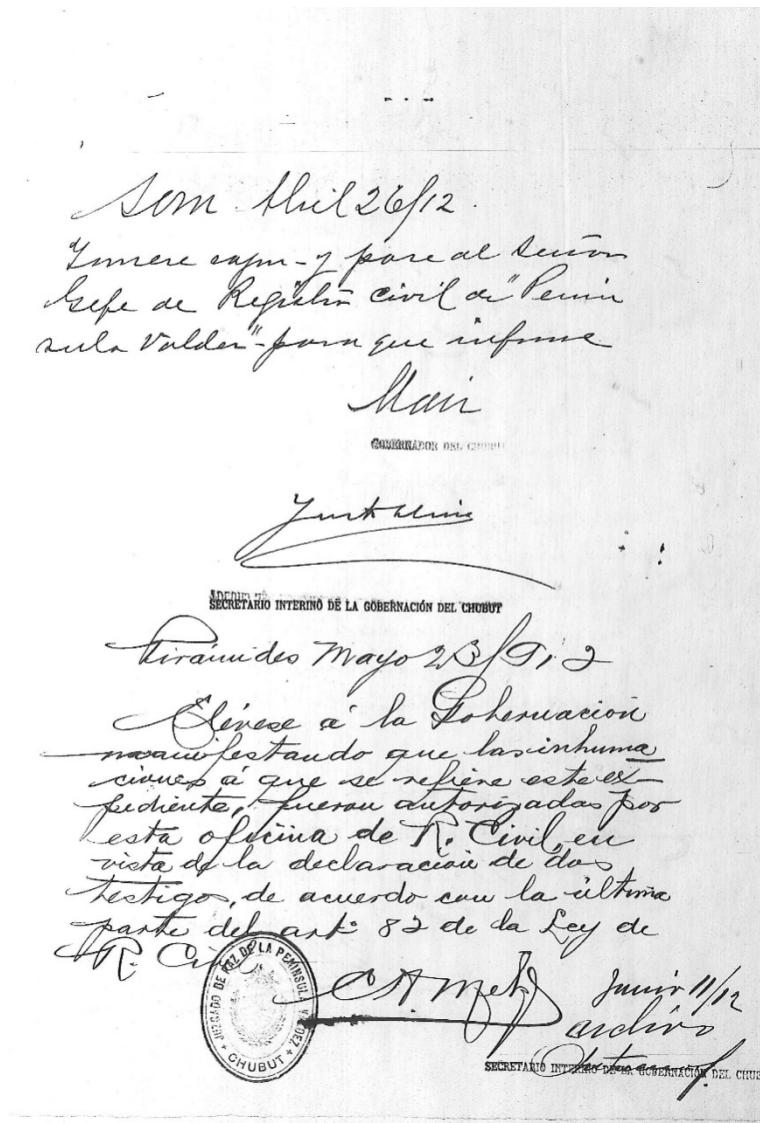 Abril 26/12.
Tómese razón y pase al Señor
Gefe de Registro Civil de "Penin
sula Valdez" para que informe
GOBERNADOR DEL CHUBUT
SECRETARIO INTERINO DE LA GOBERNACIÓN DEL CHUBUT
Pirámides Mayo 23/912
Elévese á la Gobernación
manifestando que las inhuma
ciones á que se refiere este ex-
pediente, fueron autorizadas por
esta oficina de R. Civil, en
vista de la declaración de dos
testigos, de acuerdo con la última
parte del art: 82 de la Ley de
R. Civil.
JUZGADO DE PAZ DE LA PENINSULA VALDEZ
CHUBUT
Junio 11/12
archivo
SECRETARIO INTERINO DE LA GOBERNACIÓN DEL CHUB